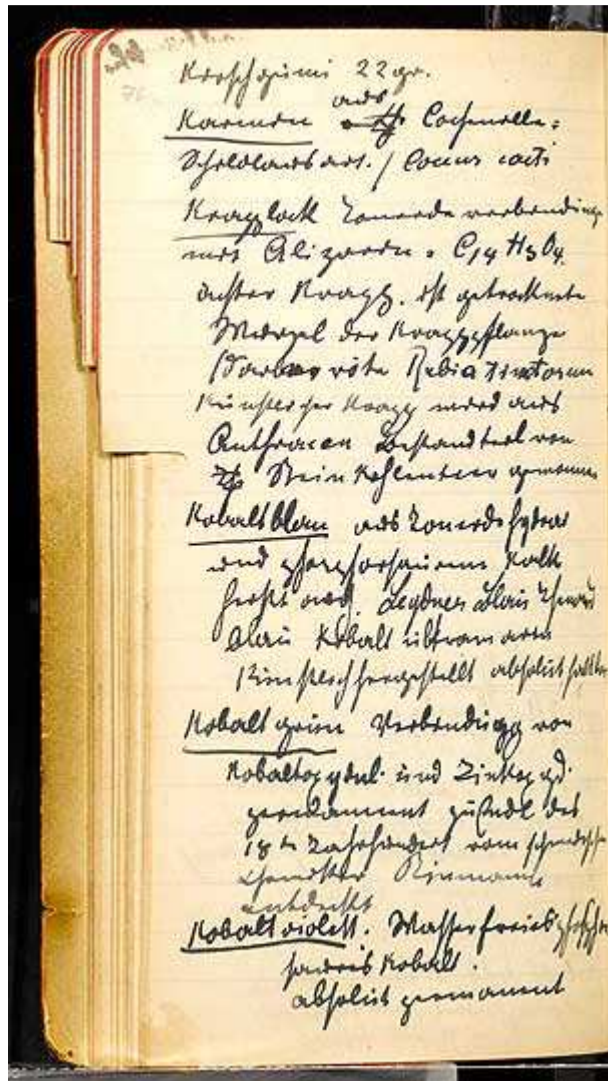 Kirschgumi 22 gr.
Karmin aus Cochenille =
Schildlausart. / Coccus cacti
Krapplack Tonerdeverbindung
mit Alizarin = C14 H8 O4.
ächter Krapp. ist getrocknete
Wurzel der Krapppflanze
/ Färber röte Rubia tinctorum
Künstlicher Krapp wird aus
Anthracen Bestandteil von
Steinkohlenteer gewonnen
Kobaltblau aus Tonerdehydrat
und phosphorsaurem Kalk
heißt auch Leydner Blau Thenards
blau Kobalt ultramarin
künstlich hergestellt absolut haltbar
Kobaltgrün Verbindung von
Kobaltoxydul. und Zinkoxyd.
permanent zu Endl des
18ten Jahrhundert vom schwedischen
Chemiker Rinmann
entdeckt
Kobaltviolett. Wasserfreies phosphor
saures Kobalt.
absolut permanent